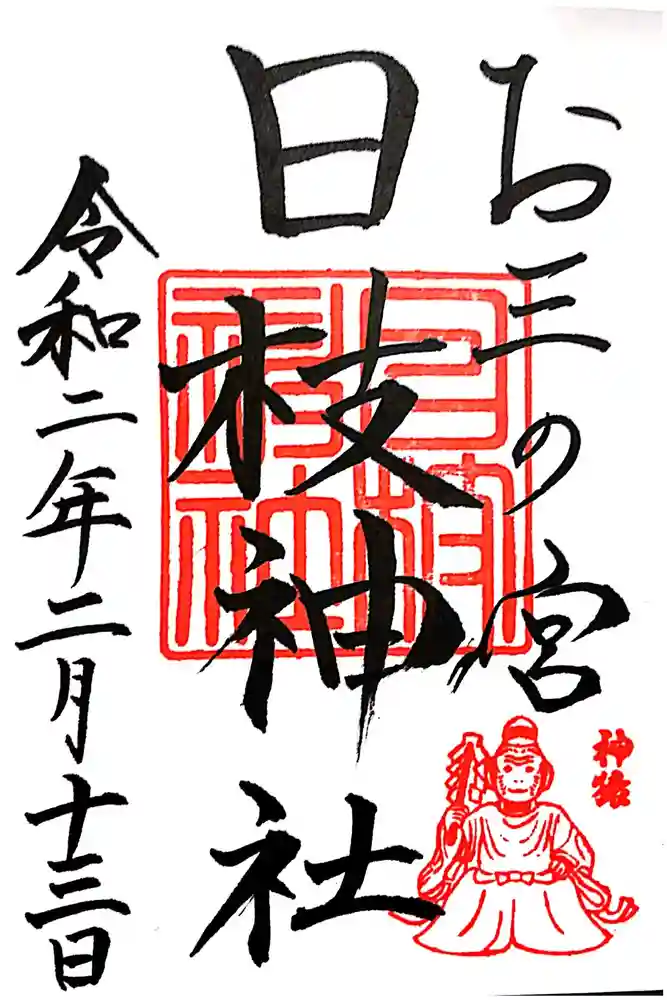 お三の宮
日枝神社
日枝神社
神猿
令和二年二月十三日